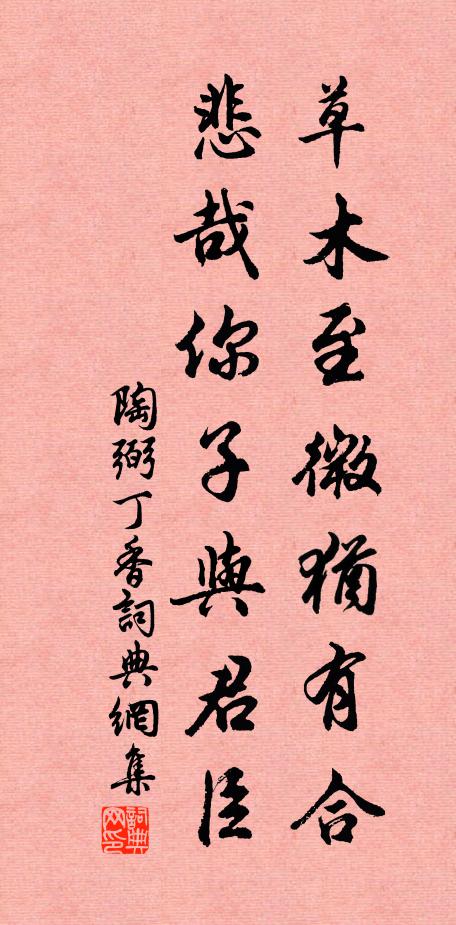 草木至微猶有合
悲哉你子與君臣
陶弼丁香詞典網集
詞典網印